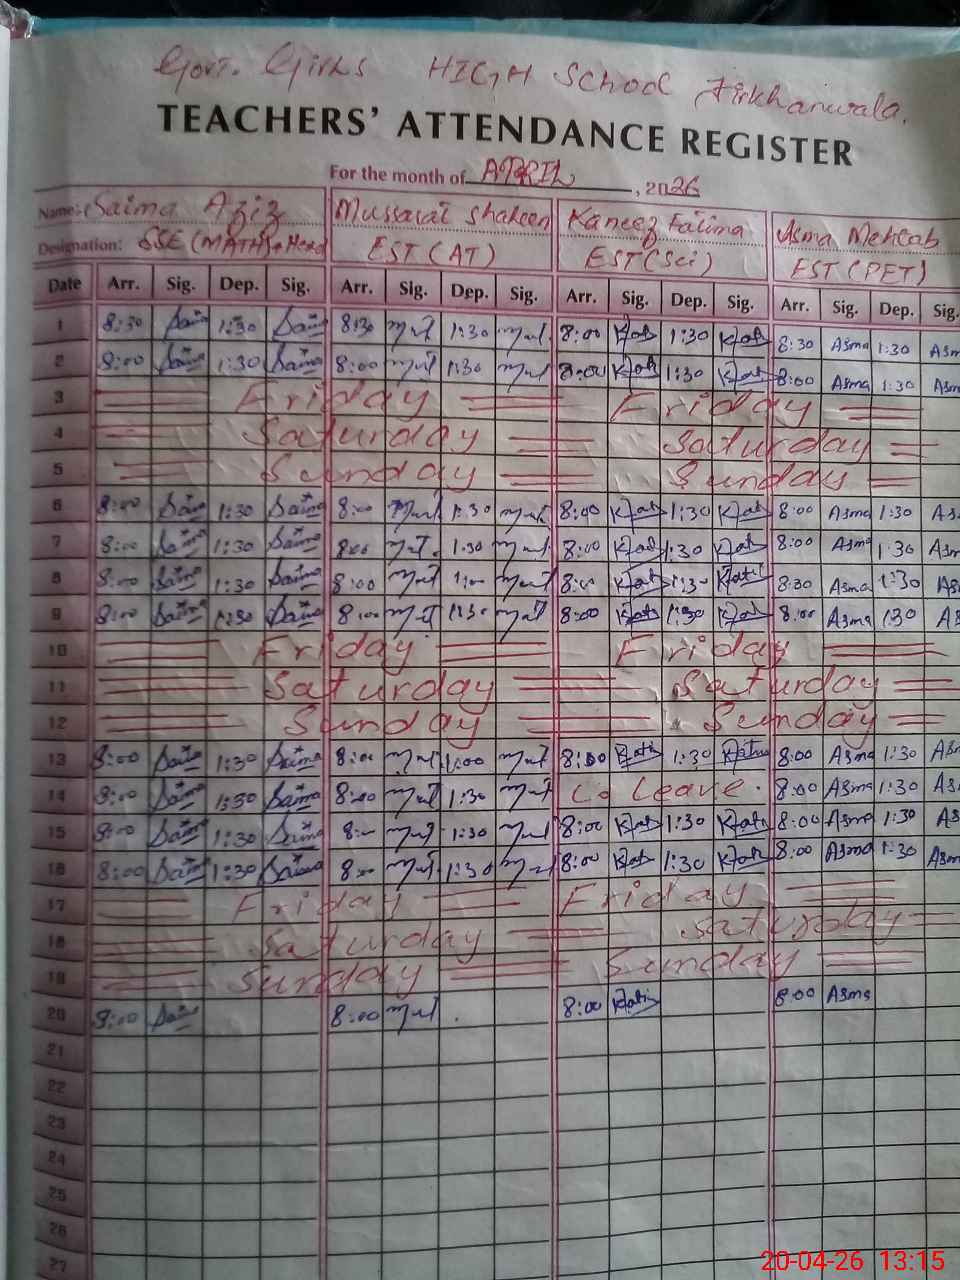 Govt. Girls HIGH School Firkhanwala.
TEACHERS' ATTENDANCE REGISTER
For the month of APRIL, 2026
Name: Saima Aziz Mussarat Shaheen Kaneez Fatima Asma Mehtab
Designation: SSE (MATH) + Head EST (AT) EST (Sci) EST (PET)
Date Arr. Sig. Dep. Sig. Arr. Sig. Dep. Sig. Arr. Sig. Dep. Sig. Arr. Sig. Dep. Sig.
1 8:30 Saima 1:30 Saima 8:30 1:30 8:00 1:30 8:30 Asma 1:30 Asm
2 8:00 Saima 1:30 Saima 8:00 1:30 8:00 1:30 8:00 Asma 1:30 Asm
3 Friday Friday
4 Saturday Saturday
5 Sunday Sunday
6 8:00 Saima 1:30 Saima 8:00 1:30 8:00 1:30 8:00 Asma 1:30 As
7 8:00 Saima 1:30 Saima 8:00 1:30 8:00 1:30 8:00 Asma 1:30 Asm
8 8:00 Saima 1:30 Saima 8:00 8:00 1:30 8:00 Asma 1:30 As
9 8:00 Saima 1:30 Saima 8:00 1:30 8:00 1:30 8:00 Asma 1:30 As
10 Friday Friday
11 Saturday Saturday
12 Sunday Sunday
13 8:00 Saima 1:30 Saima 8:00 1:00 8:00 1:30 8:00 Asma 1:30 As
14 8:00 Saima 1:30 Saima 8:00 1:30 Leave. 8:00 Asma 1:30 As
15 8:00 Saima 1:30 Saima 8:00 1:30 8:00 1:30 8:00 Asma 1:30 As
16 8:00 Saima 1:30 Saima 8:00 1:30 8:00 1:30 8:00 Asma 1:30 Asm
17 Friday Friday
18 Saturday Saturday
19 Sunday Sunday
20 8:00 Saima 8:00 8:00 8:00 Asma
21
22
23
24
25
26
27
20-04-26 13:15